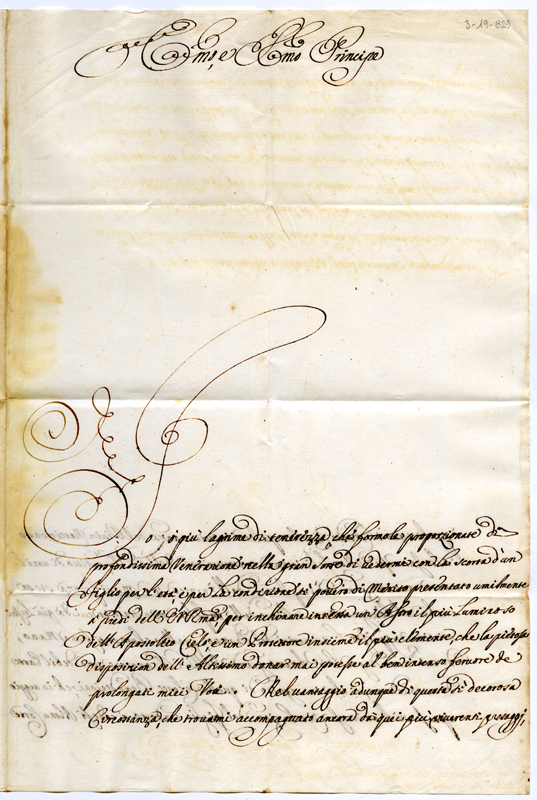 3-19-829
Emo, e Rmo Principe
Ho più lagrime di tenerezza, che formole proporzionate di
profondissima Venerazione nella gran Sorte di vedermi con la scorta d'un
figlio per l'età, e per la condizione sì povero di Merito presentato umilmente
a' piedi dell' per inchinare in essa un Astro il più Luminoso
dell' Apostolico Cielo, e un Protettore insieme il più clemente, che la pietosa
disposizion dell' Altissimo donar mai potesse al ben intenso fervore de
prolongati miei Voti. Nel vantaggio adunque di questa sì decorosa
Circostanza, che trovami accompagnato ancora da quei più presaggi,